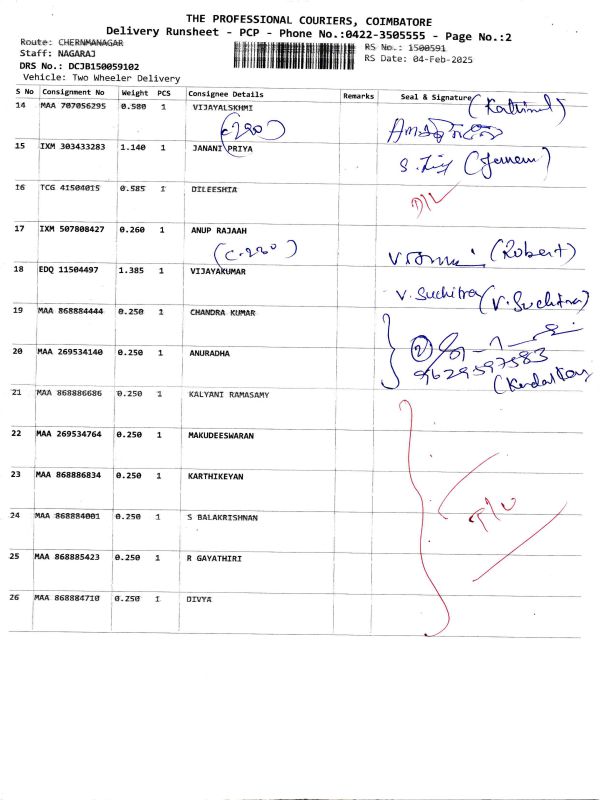 THE PROFESSIONAL COURIERS, COIMBATORE
Delivery Runsheet - PCP - Phone No.:0422-3505555 - Page No.:2
Route: CHERNMANAGAR
RS No.: 1500591
Staff: NAGARAJ
RS Date: 04-Feb-2025
DRS No.: DCJB150059102
Vehicle: Two Wheeler Delivery
S No Consignment No Weight PCS Consignee Details Remarks Seal & Signature
14 MAA 707056295 0.500 1 VIJAYALSKHMI
(C-290)
15 IXM 303433283 1.140 1 JANANI PRIYA
16 TCG 41504015 0.585 1 DILEESHIA
D/L
17 IXM 507808427 0.260 1 ANUP RAJAAH
(C-220) (Robert)
18 EDQ 11504497 1.385 1 VIJAYAKUMAR
V. Suchitra (V. Suchitra)
19 MAA 868884444 0.250 1 CHANDRA KUMAR
20 MAA 269534140 0.250 1 ANURADHA
(2)
9629597583
21 MAA 868886686 0.250 1 KALYANI RAMASAMY
22 MAA 269534764 0.250 1 MAKUDEESWARAN
23 MAA 868886834 0.250 1 KARTHIKEYAN
24 MAA 868884001 0.250 1 S BALAKRISHNAN
25 MAA 868885423 0.250 1 R GAYATHIRI
26 MAA 868884710 0.250 1 DIVYA